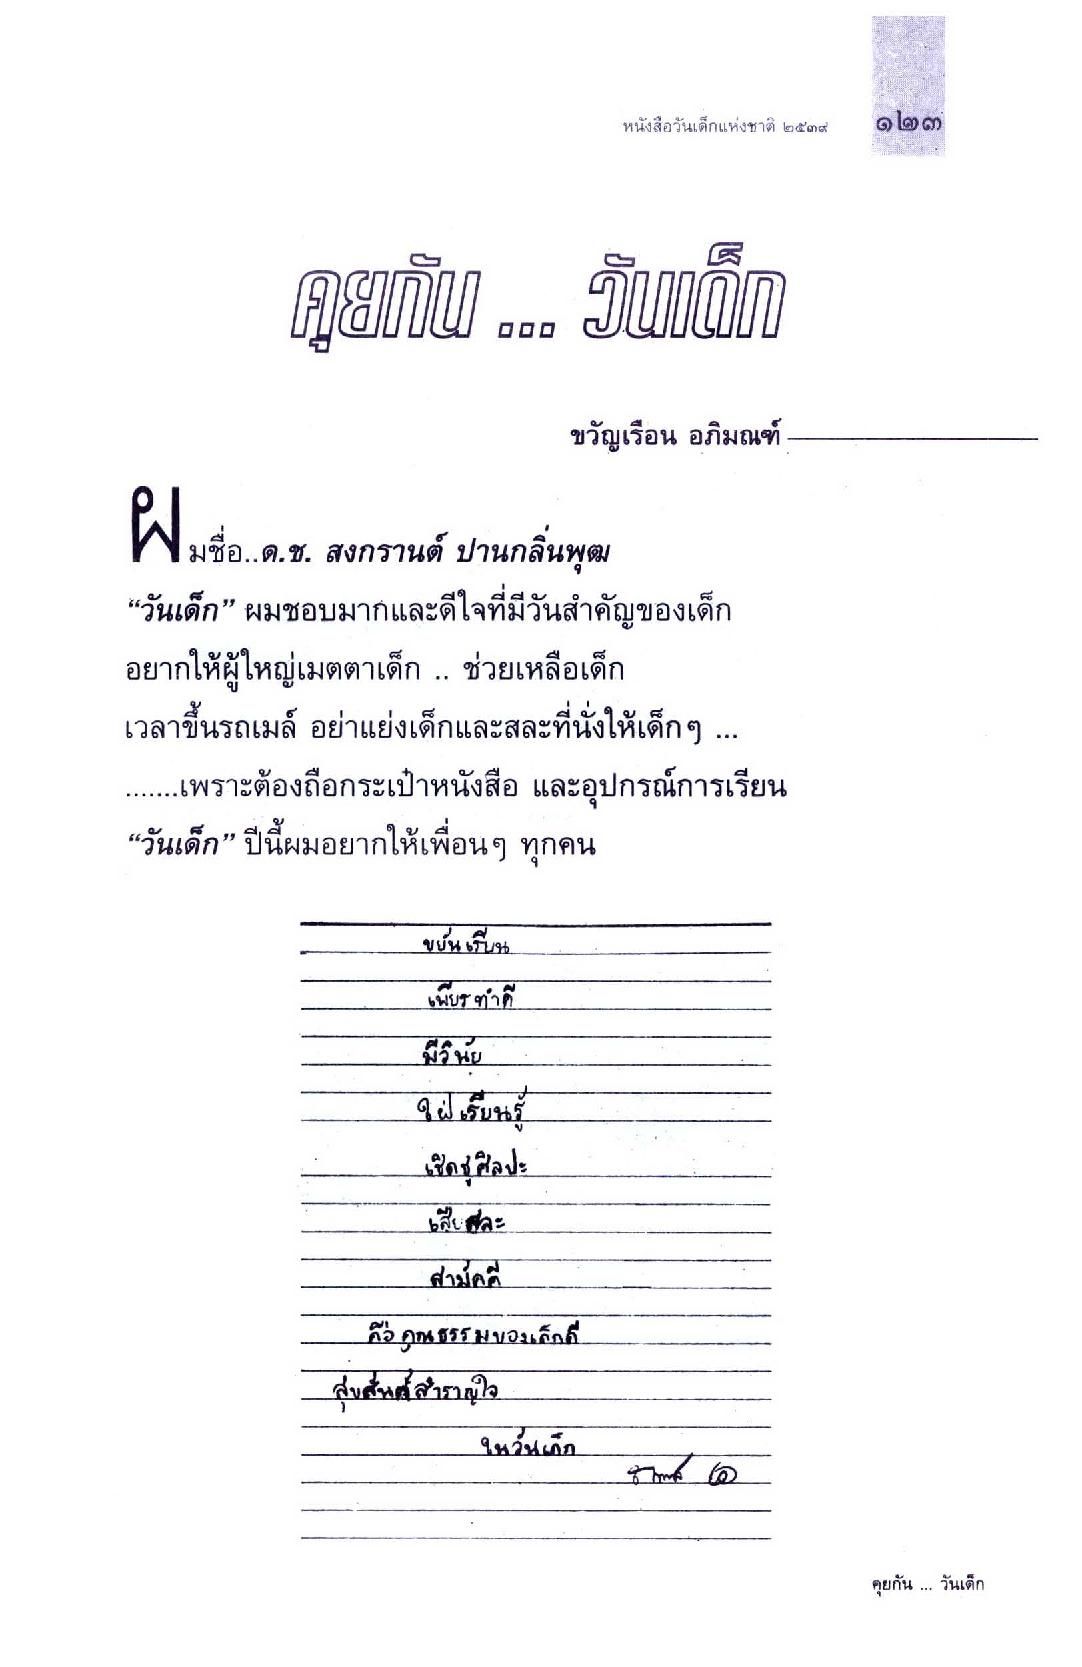 หนังสือวันเด็กแห่งชาติ ๒๕๓๙ ๑๒๓
คุยกัน ... วันเด็ก
ขวัญเรือน อภิมณฑ์
ผมชื่อ..ด.ช. สงกรานต์ ปานกลิ่นพุฒ
“วันเด็ก” ผมชอบมากและดีใจที่มีวันสำคัญของเด็ก
อยากให้ผู้ใหญ่เมตตาเด็ก .. ช่วยเหลือเด็ก
เวลาขึ้นรถเมล์ อย่าแย่งเด็กและสละที่นั่งให้เด็กๆ ...
.......เพราะต้องถือกระเป๋าหนังสือ และอุปกรณ์การเรียน
“วันเด็ก” ปีนี้ผมอยากให้เพื่อนๆ ทุกคน
ขยันเรียน
เพียรทำดี
มีวินัย
ใฝ่เรียนรู้
เชิดชูศิลปะ
เสียสละ
สามัคคี
คือคุณธรรมของเด็กดี
สุขสันต์สำราญใจ
ในวันเด็ก
คุยกัน ... วันเด็ก